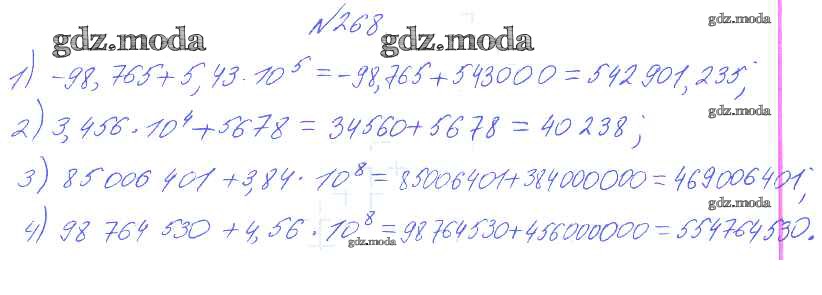 N268
gdz.moda
gdz.moda
gdz.moda
1) -98,765+5,43·10⁵=-98,765+543000=542901,235;
gdz.moda
2) 3,456·10⁴+5678=34560+5678=40238;
3) 85006401+3,84·10⁸=85006401+384000000=469006401;
gdz.moda
4) 98764530+4,56·10⁸=98764530+456000000=554764530.
gdz.moda